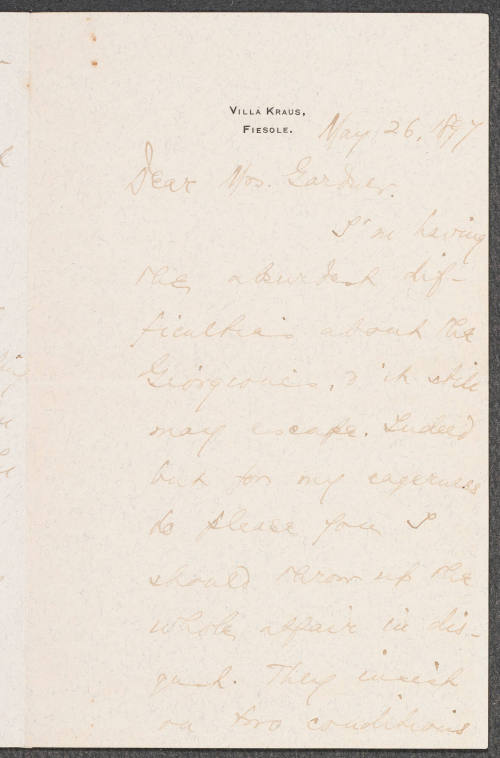 VILLA KRAUS,
FIESOLE.
May 26, 1897
Dear Mrs. Gardner.
I'm having
the absurdest dif-
ficulties about the
Giorgione, & it still
may escape. Indeed
but for my eagerness
to please you I
should throw up the
whole affair in dis-
gust. They insist
on two conditions